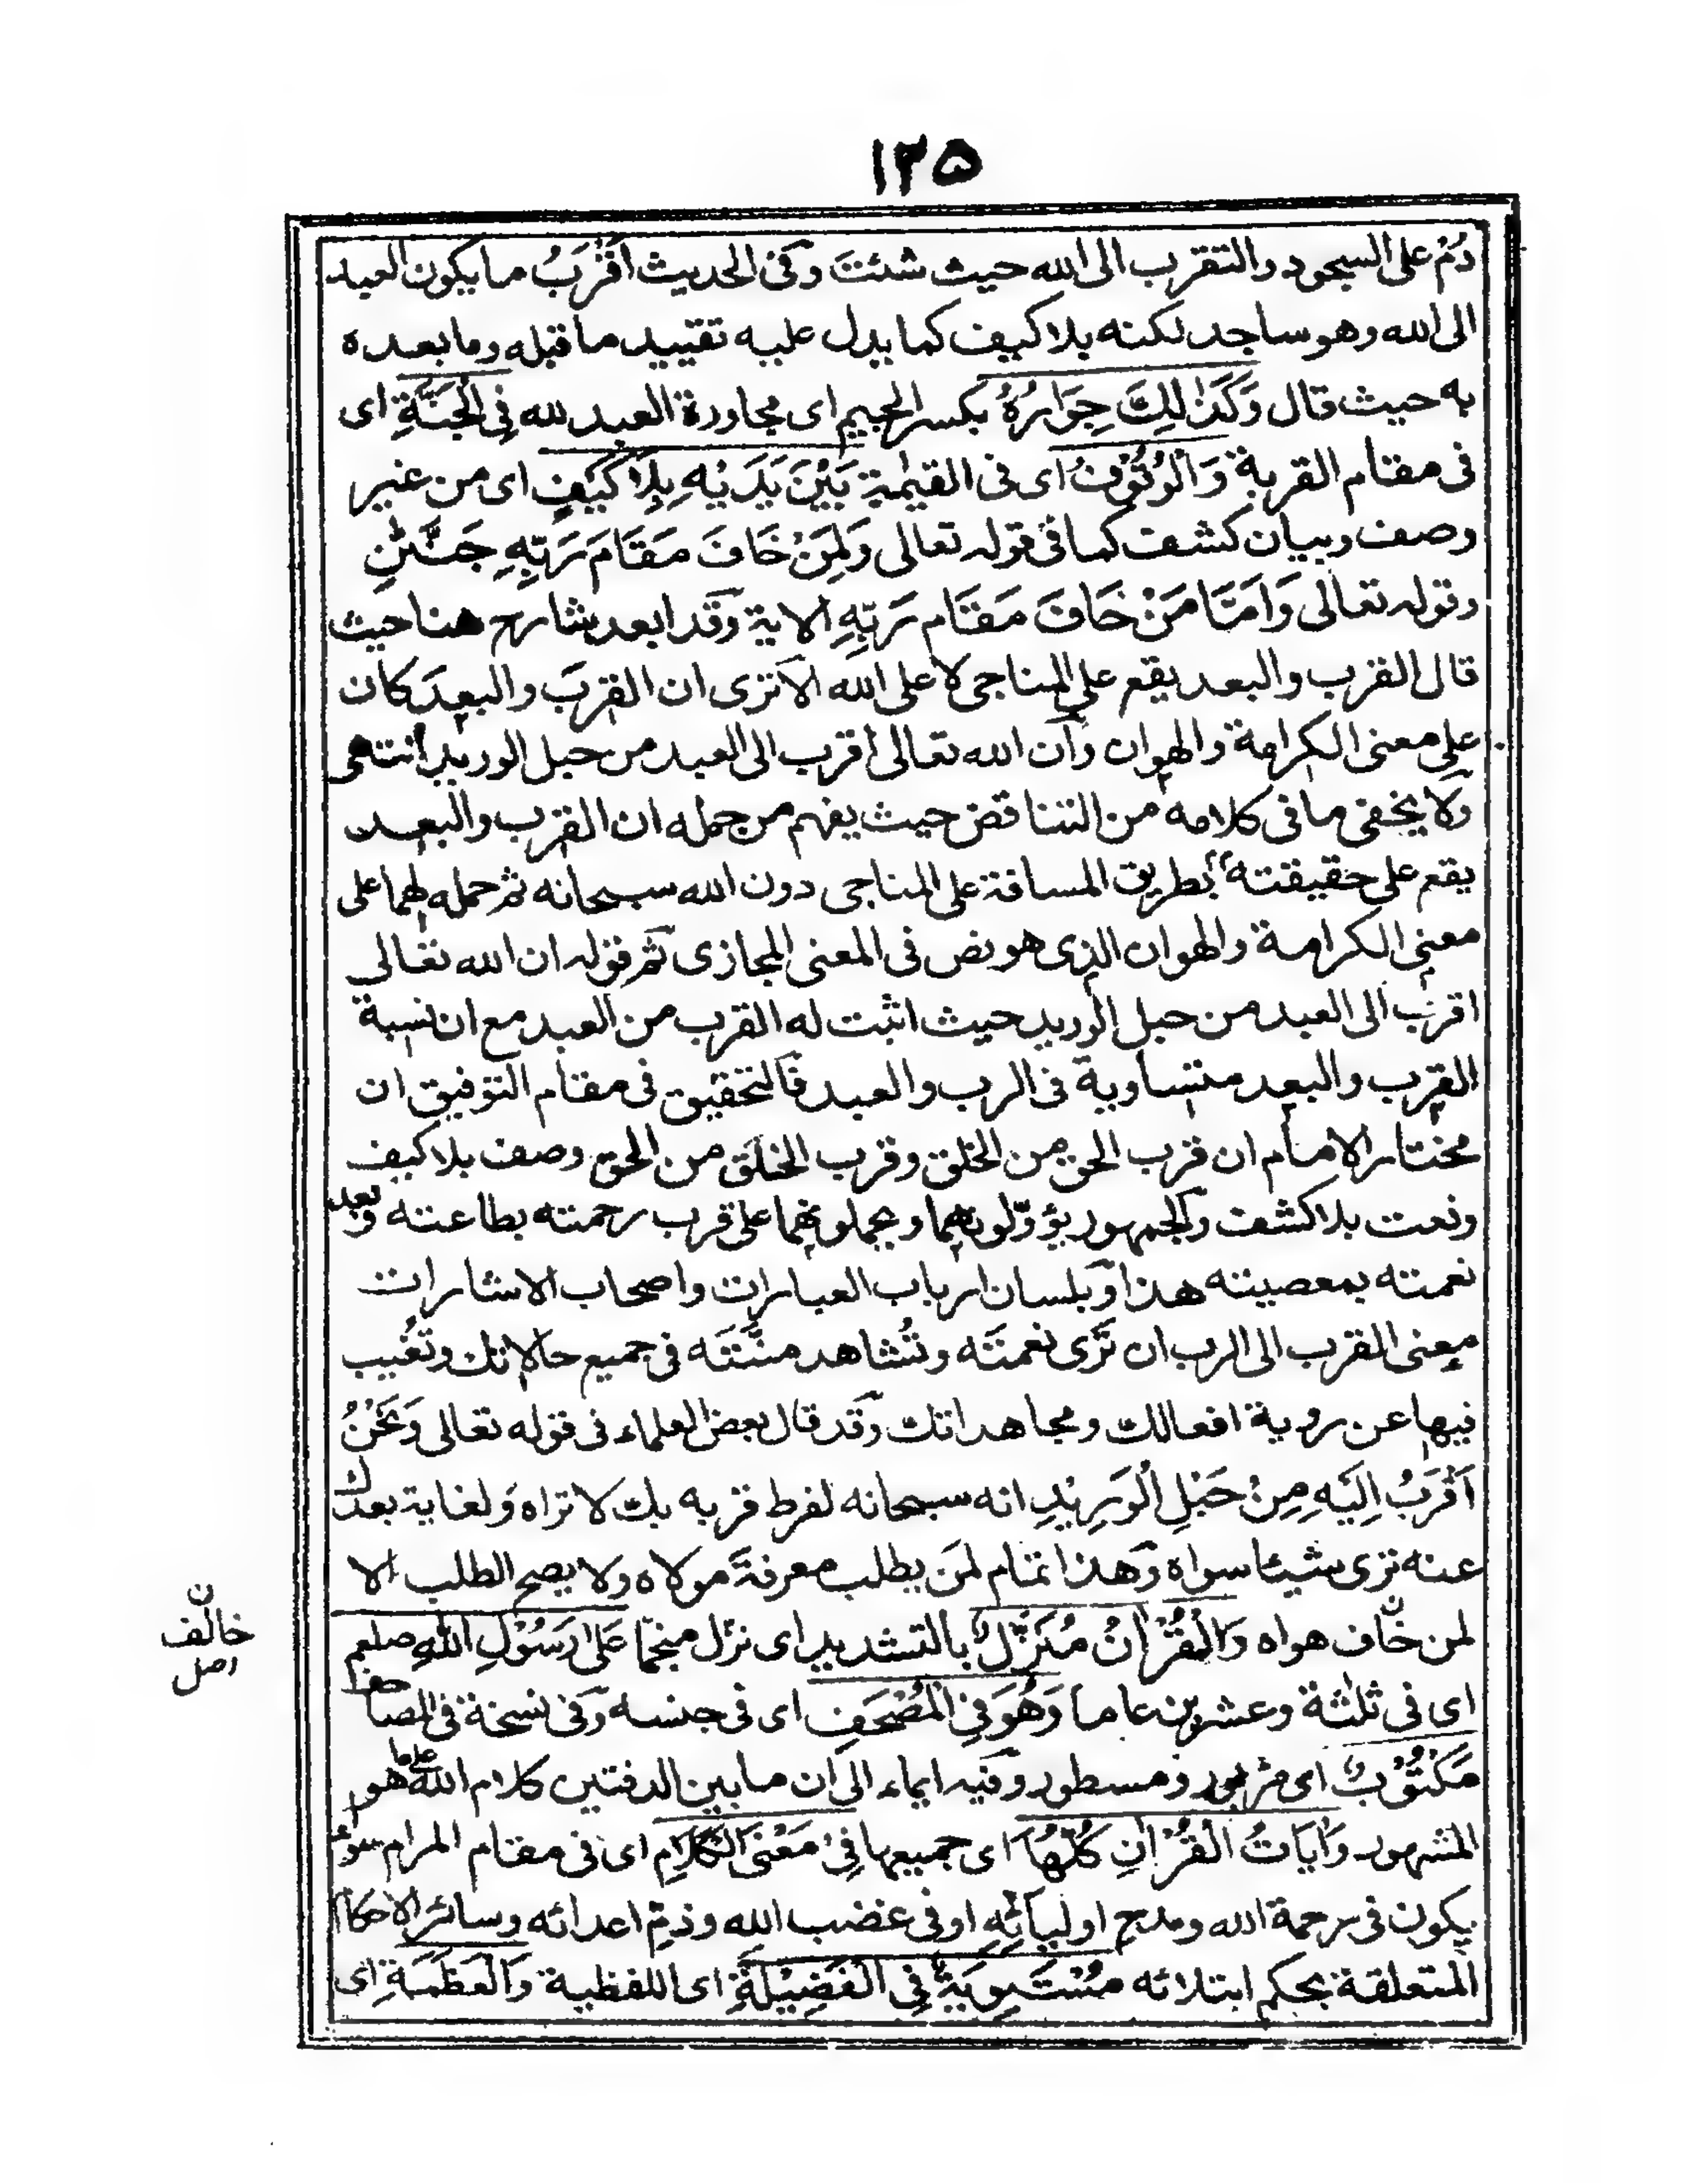 ١٢٥
دُمْ على السجود والتقرب الى الله حيث شئتَ وفى الحديث اَقْرَبُ ما يكون العبد
الى الله وهو ساجد لكنه بلا كيف كما يدل عليه تقييد ما قبله وما بعده
به حيث قال وَكَذٰلِكَ جِوَارُهُ بكسر الجيم اى مجاورة العبد لله فِى الْجَنَّةِ اى
فى مقام القربة وَالْوُقُوْفُ اى فى القيٰمة بَيْنَ يَدَيْهِ بِلَا كَيْفٍ اى من غير
وصف وبيان كشف كما فى قوله تعالى وَلِمَنْ خَافَ مَقَامَ رَبِّهِ جَنَّتٰنِ
وقوله تعالى وَاَمَّا مَنْ خَافَ مَقَام رَبِّهِ الاية وقد ابعد شارح هنا حيث
قال القرب والبعد يقع على المناجى لا على الله الا ترى ان القربَ والبعدَ كان
على معنى الكرامة والهوان وان الله تعالى اقرب الى العبد من حبل الوريد انتهى
ولا يخفى ما فى كلامه من التناقض حيث يفهم من جمله ان القرب والبعد
يقع على حقيقته بطريق المسافة على المناجى دون الله سبحانه ثم حمله لهما على
معنى الكرامة والهوان الذى هو نص فى المعنى المجازى ثم قوله ان الله تعالى
اقرب الى العبد من حبل الوريد حيث اثبت له القرب من العبد مع ان نسبة
القرب والبعد متساوية فى الرب والعبد فالتحقيق فى مقام التوفيق ان
مختار الامام ان قرب الحق من الخلق وقرب الخلق من الحق وصف بلا كيف
ونعت بلا كشف والجمهور يؤوّلونهما ويحملونهما على قرب رحمته بطاعته وبعد
نعمته بمعصيته هذا وبلسان ارباب العبارات واصحاب الاشارات
معنى القرب الى الرب ان تَرٰى نعمتَه وتُشاهد منّتَه فى جميع حالاتك وتَغيب
فيها عن روية افعالك ومجاهداتك وقد قال بعض العلماء فى قوله تعالى وَنَحْنُ
اَقْرَبُ اِلَيْهِ مِنْ حَبْلِ الْوَرِيْدِ انه سبحانه لفرط قربه بك لا تراه ولغاية بعدك
عنه ترى شيئا سواه وهذا تمام لمن يطلب معرفةَ مولاه ولا يصح الطلب الا
لمن خاف هواه وَالْقُرْاٰنُ مُنَزَّلٌ بالتشديد اى نزل منجّما عَلٰى رَسُوْلِ اللهِ صلعم
اى فى ثلٰثة وعشرين عاما وَهُوَ فِى الْمُصْحَفِ اى فى جنسه وفى نسخة فى المصاحف
مَكْتُوْبٌ اى مزبور ومسطور وفيه ايماء الى ان ما بين الدفتين كلام الله على ما هو
المشهور وَاٰيَاتُ الْقُرْاٰنِ كُلُّهَا اى جميعها فِىْ مَعْنَى الْكَلَامِ اى فى مقام المرام سواء
يكون فى رحمة الله ومدح اوليائِهِ او فى غضب الله وذمّ اعدائه وسائر الاحكام
المتعلقة بحكم ابتلائه مُسْتَوِيَةٌ فِى الْفَضِيْلَةِ اى اللفظية وَالْعَظَمَةِ اى
ن
خالف
اصل